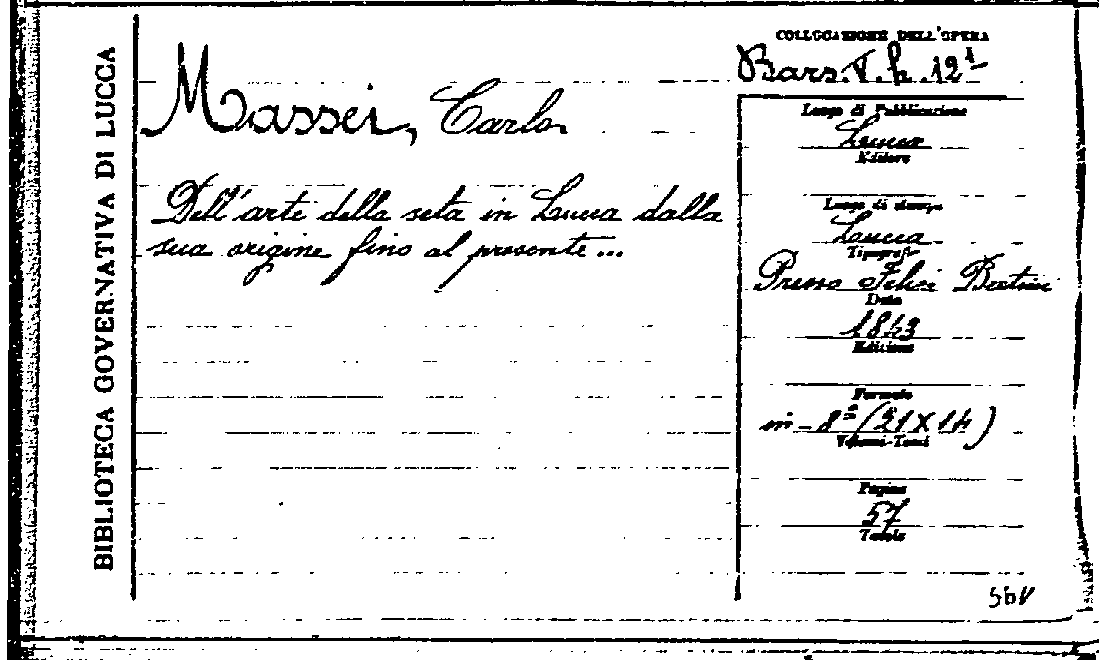 BIBLIOTECA GOVERNATIVA DI LUCCA
Massei, Carlo
Dell'arte della seta in Lucca dalla
sua origine fino al presente...
COLLOCAZIONE DELL'OPERA
Bars. V. h. 12¹
Luogo di Pubblicazione
Lucca
Editore
Luogo di stampa
Lucca
Tipografo
Presso Felice Bertini
Data
1843
Edizione
Formato
in-8º (21×14)
Volumi-Tomi
Pagine
57
Tavole